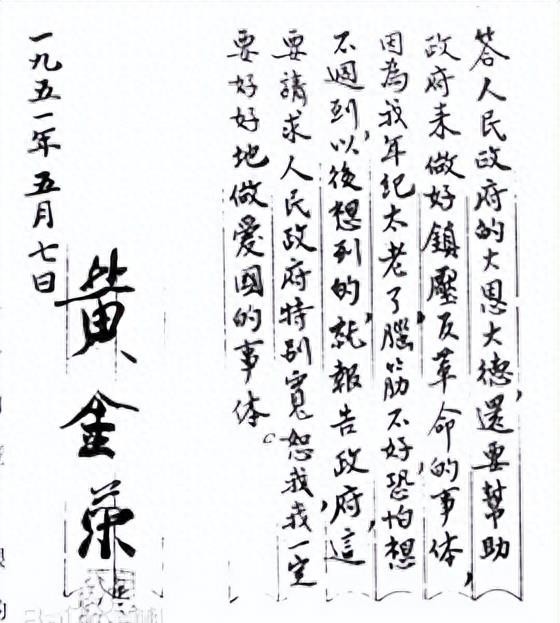 答人民政府的大恩大德，還要幫助
政府来做好鎮壓反革命的事体，
因為我年紀太老了，腦筋不好，恐怕想
不週到，以後想到的，就報告政府，這
要請求人民政府特别寬恕我，我一定
要好好地做愛國的事体。
黄金荣
一九五一年五月七日